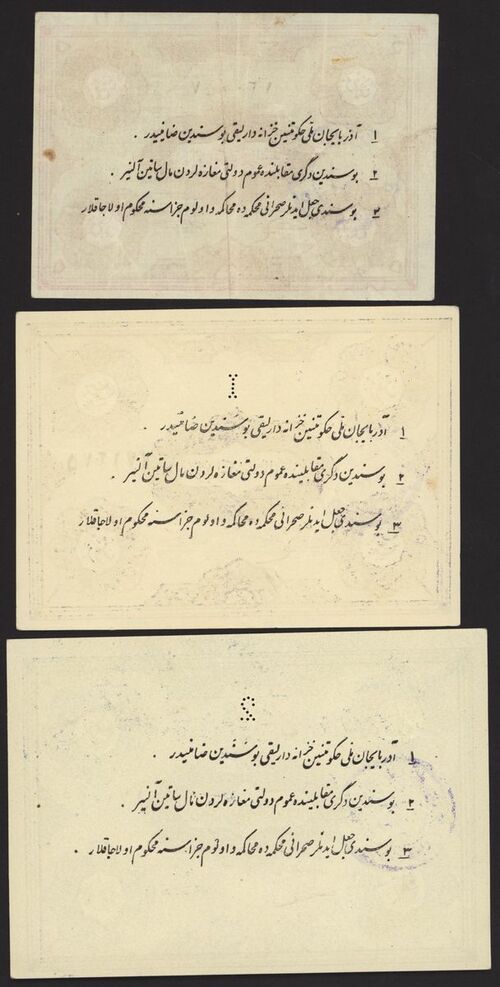 ۱ آذربایجان ملّی حکومتنین خزانه دارلیقی بوسنددین ضامنیدر .
۲ بوسندین دگری مقابلینده عموم دولتی مغازه لردن مال ساتین آلنیر .
۳ بوسندی جعل ایدنلر صحرائی محکمه ده محاکمه و اولوم جزاسنه محکوم اولاجاقلار
I
۱ آذربایجان ملّی حکومتنین خزانه دارلیقی بوسنددین ضامنیدر .
۲ بوسندین دگری مقابلینده عموم دولتی مغازه لردن مال ساتین آلنیر .
۳ بوسندی جعل ایدنلر صحرائی محکمه ده محاکمه و اولوم جزاسنه محکوم اولاجاقلار
2
۱ آذربایجان ملّی حکومتنین خزانه دارلیقی بوسنددین ضامنیدر .
۲ بوسندین دگری مقابلینده عموم دولتی مغازه لردن مال ساتین آلنیر .
۳ بوسندی جعل ایدنلر صحرائی محکمه ده محاکمه و اولوم جزاسنه محکوم اولاجاقلار .